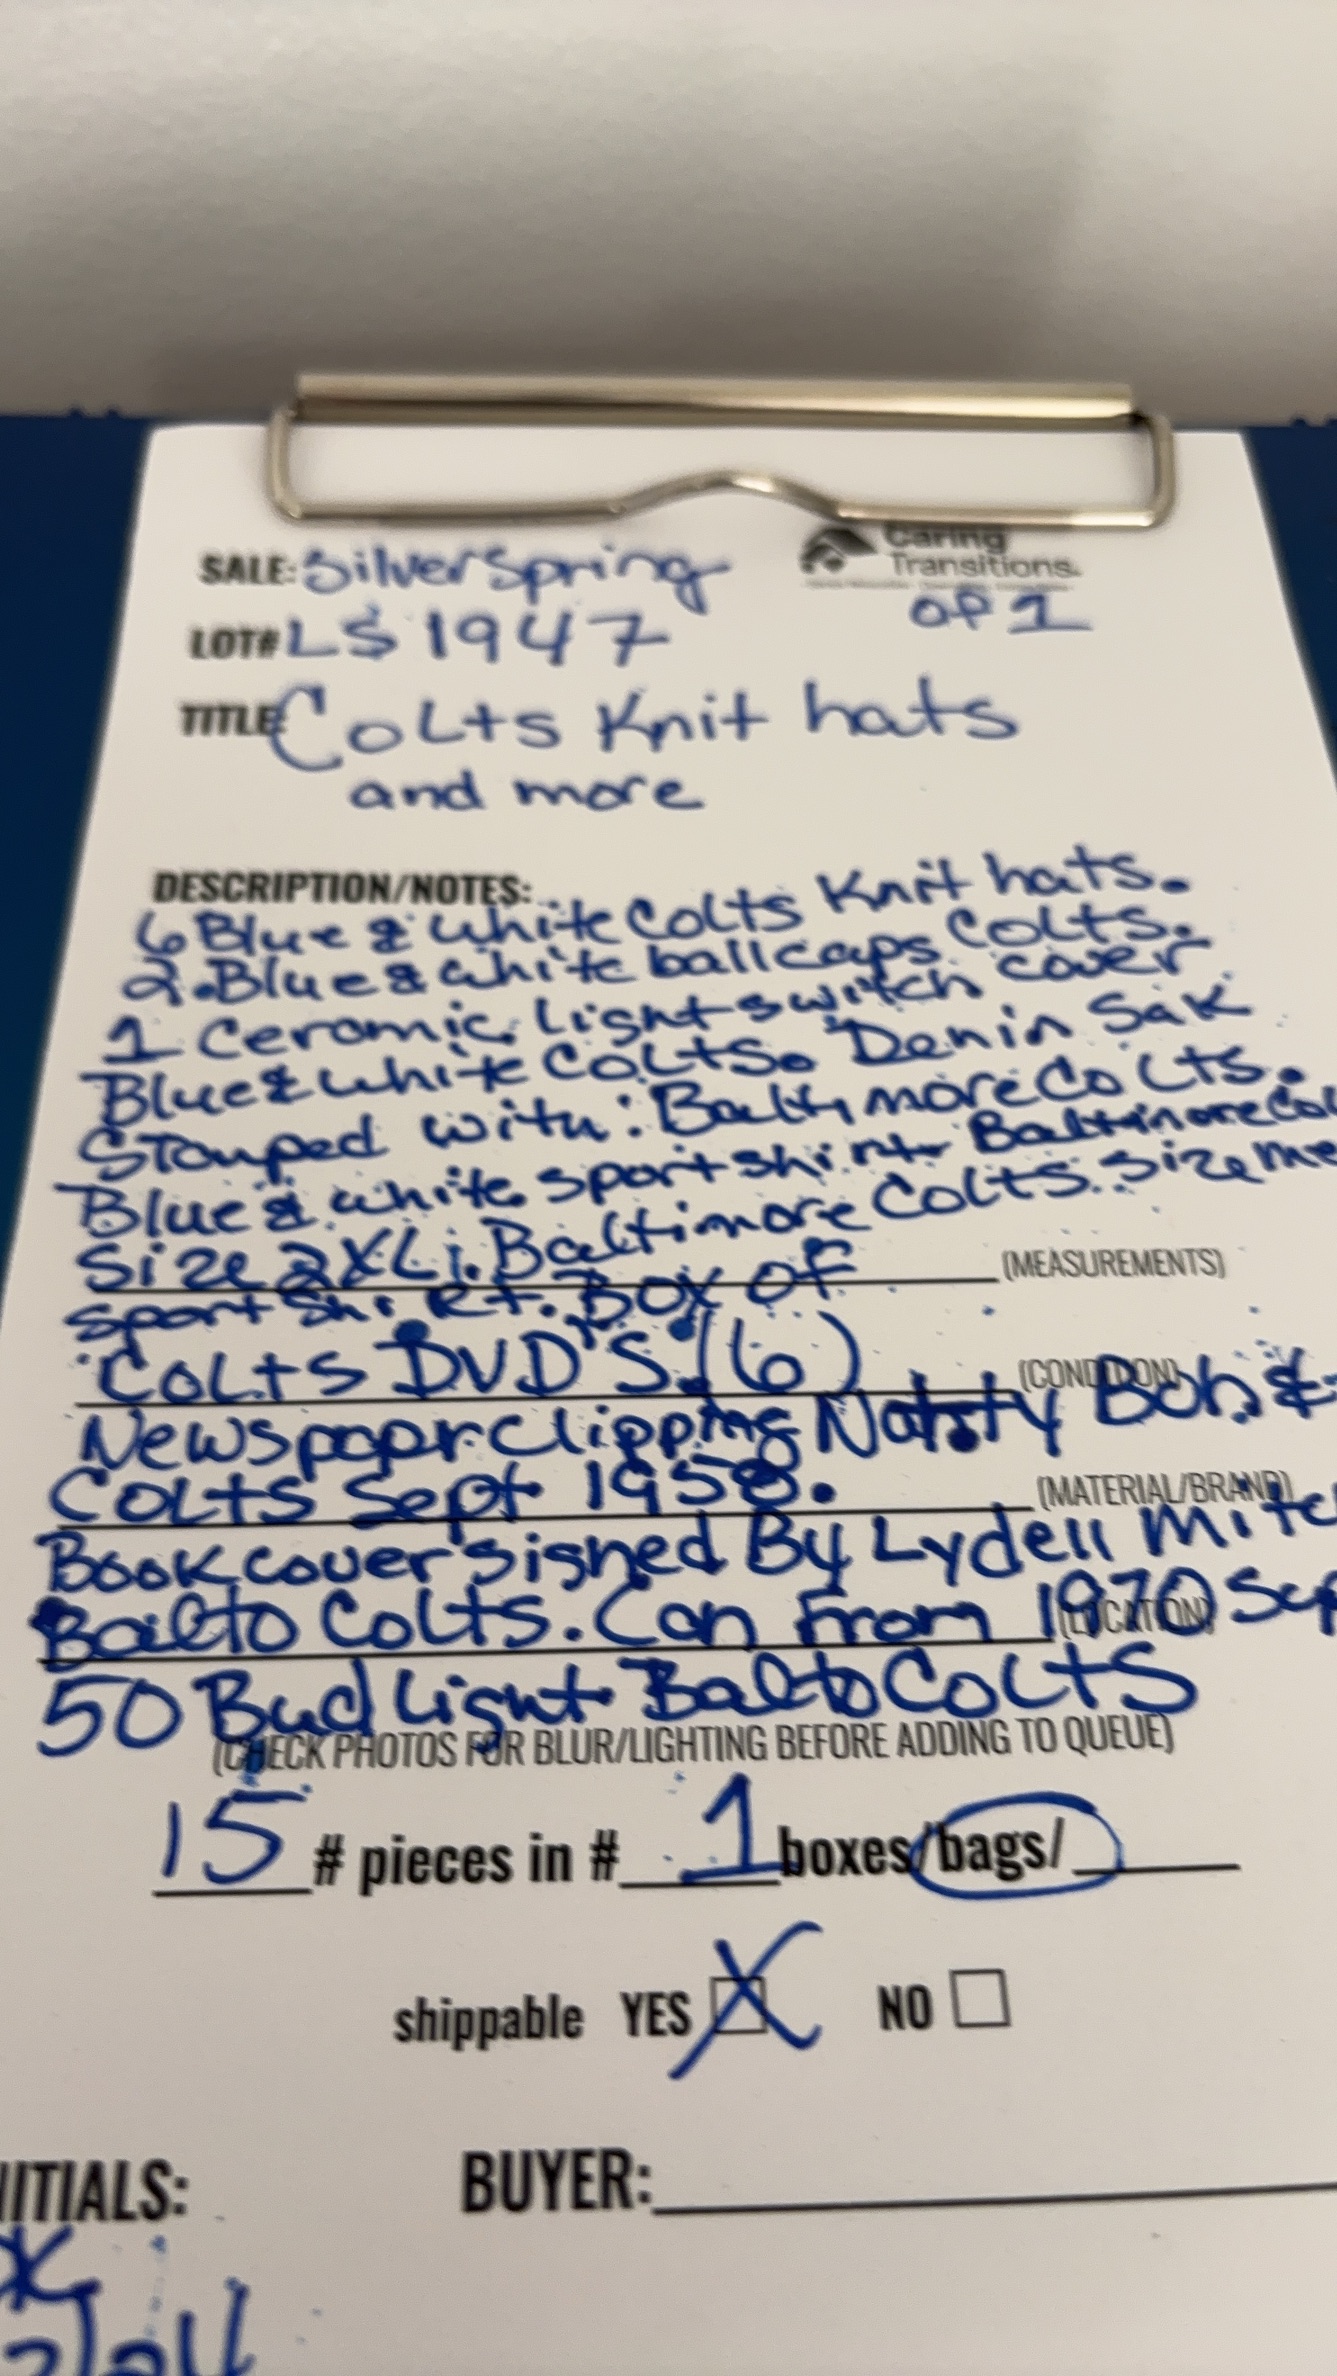 Caring
Transitions.
SALE: Silver Spring
OP 1
LOT# LS 1947
TITLE: Colts Knit hats
and more
DESCRIPTION/NOTES:
6 Blue & White Colts Knit hats.
2. Blue & White ballcaps Colts.
1 Ceramic Light switch cover
Blue & White COLTS. Denin Sak
Stamped with: Baltimore Colts.
Blue & white sport shirt Baltimore Col
Size 2XL; Baltimore Colts. Size me
(MEASUREMENTS)
Sport Shirt. Box of
Colts DVD'S. (6)
(CONDITION)
Newspapr Clipping Natty Boh &
Colts Sept 1958.
(MATERIAL/BRAND)
Book cover signed By Lydell Mitc
Balto Colts. Can From 1970 Sup
(LOCATION)
50 Bud Light Balto Colts
(CHECK PHOTOS FOR BLUR/LIGHTING BEFORE ADDING TO QUEUE)
15 # pieces in # 1 boxes/bags/
shippable YES X NO
NITIALS:
BUYER: